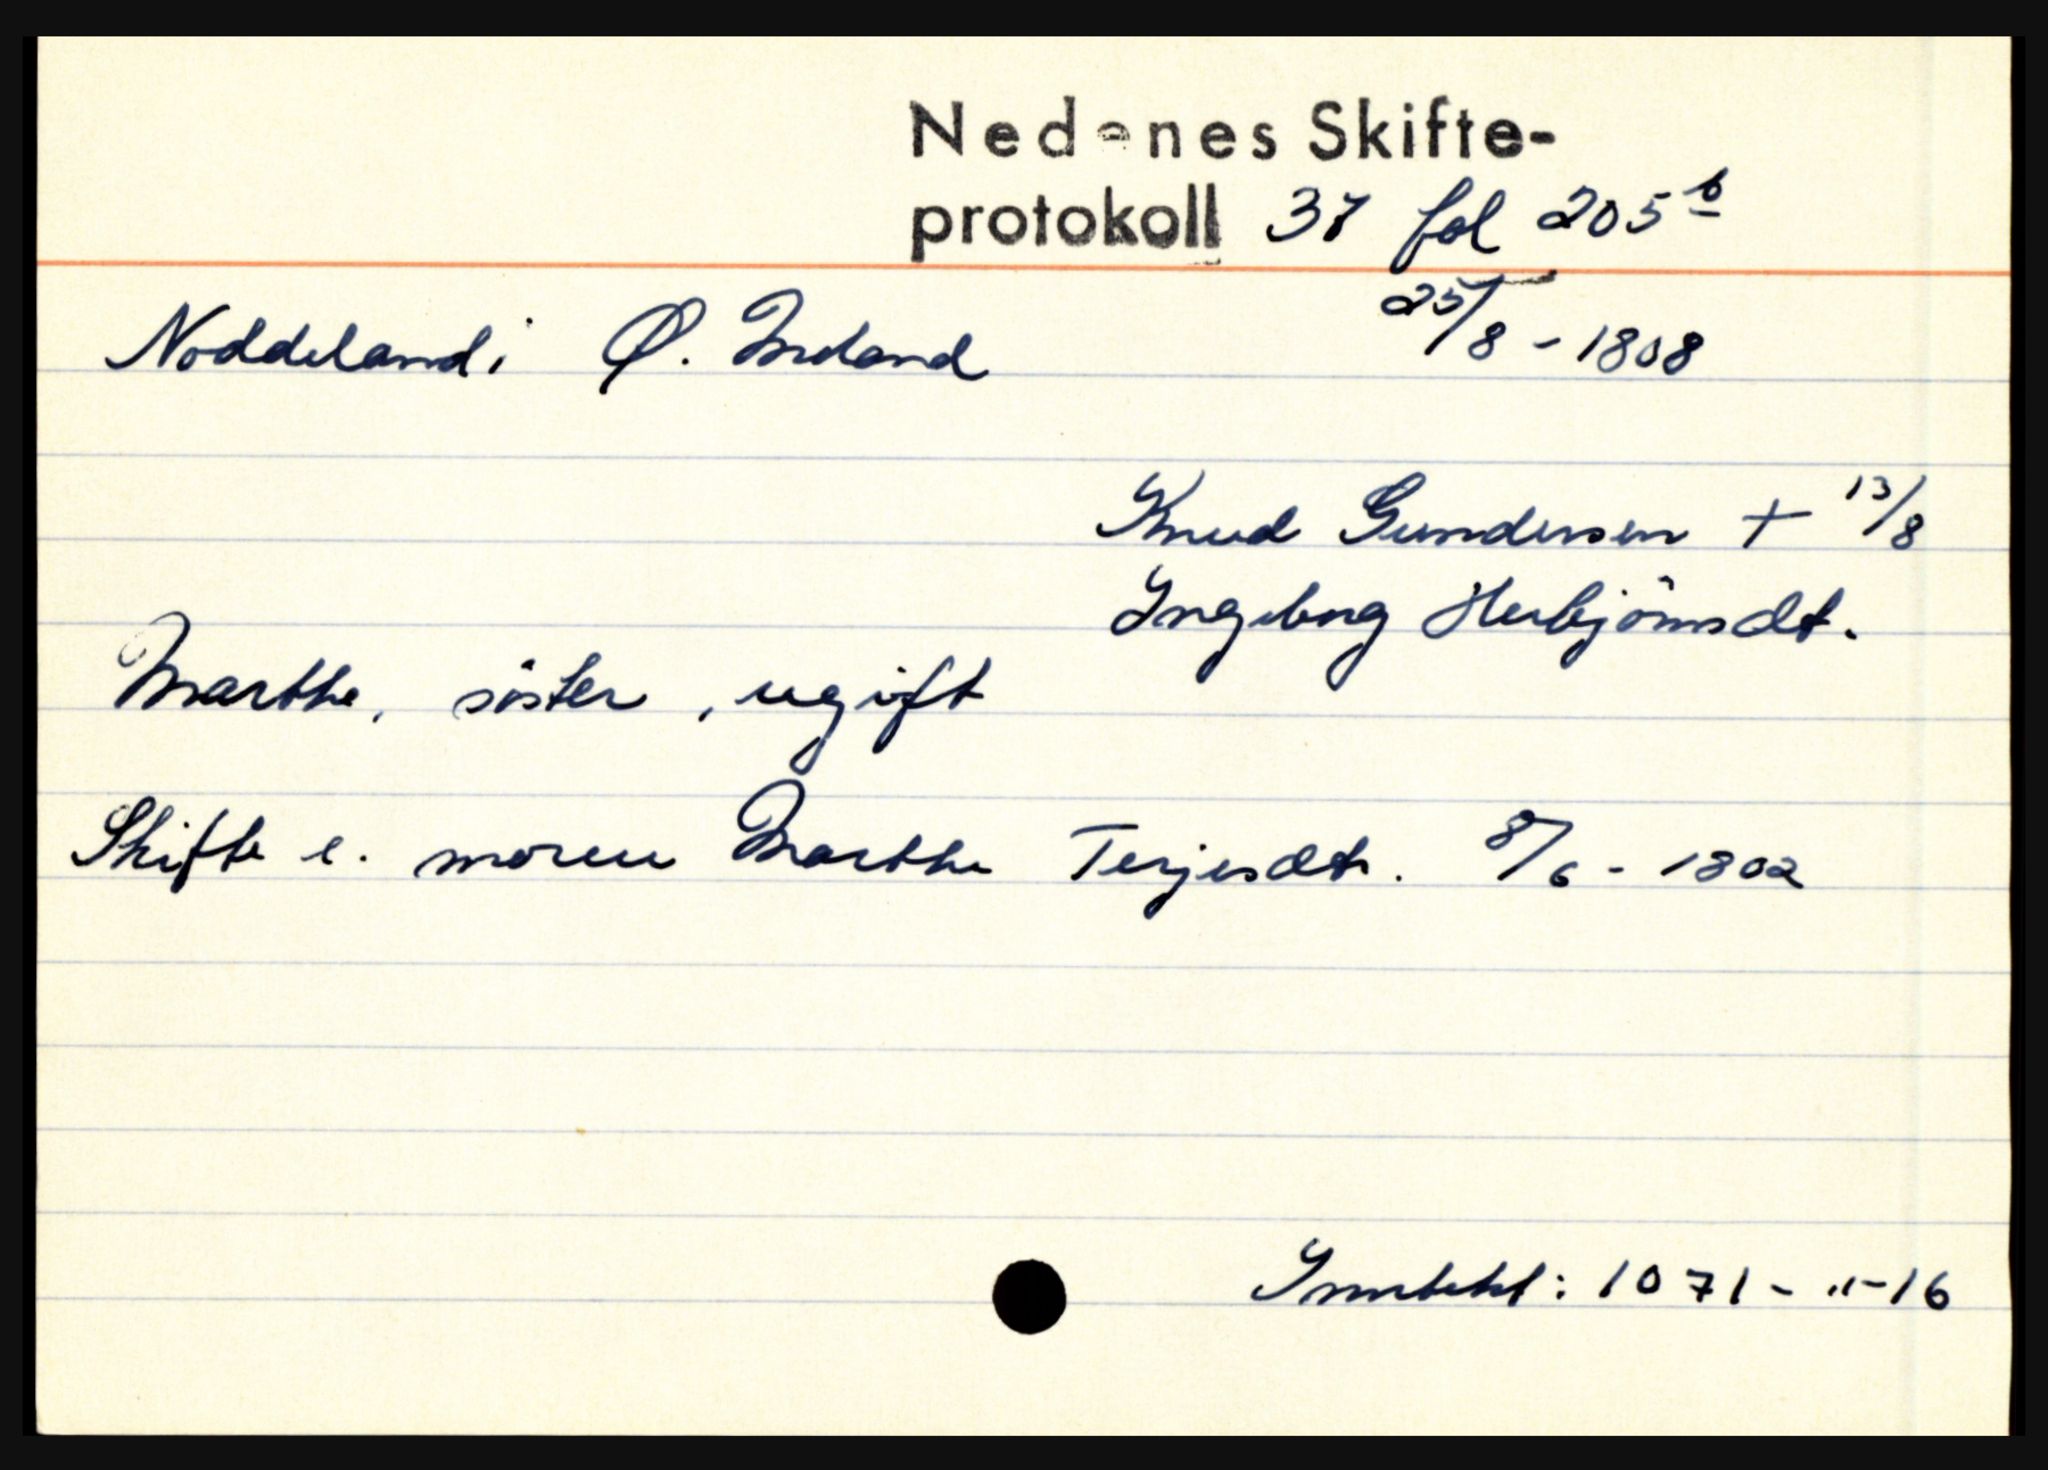 Nedenes Skifte-
protokoll 37 fol 205 b
25/8 - 1808
Noddeland i Ø. Moland
Knud Gundersen + 13/8
Ingeborg Herbjörnsdt.
Marthe, söster, ugift
Skifte e. moren Marthe Terjesdt. 8/6 - 1802
Inntekt: 1071 - " - 16